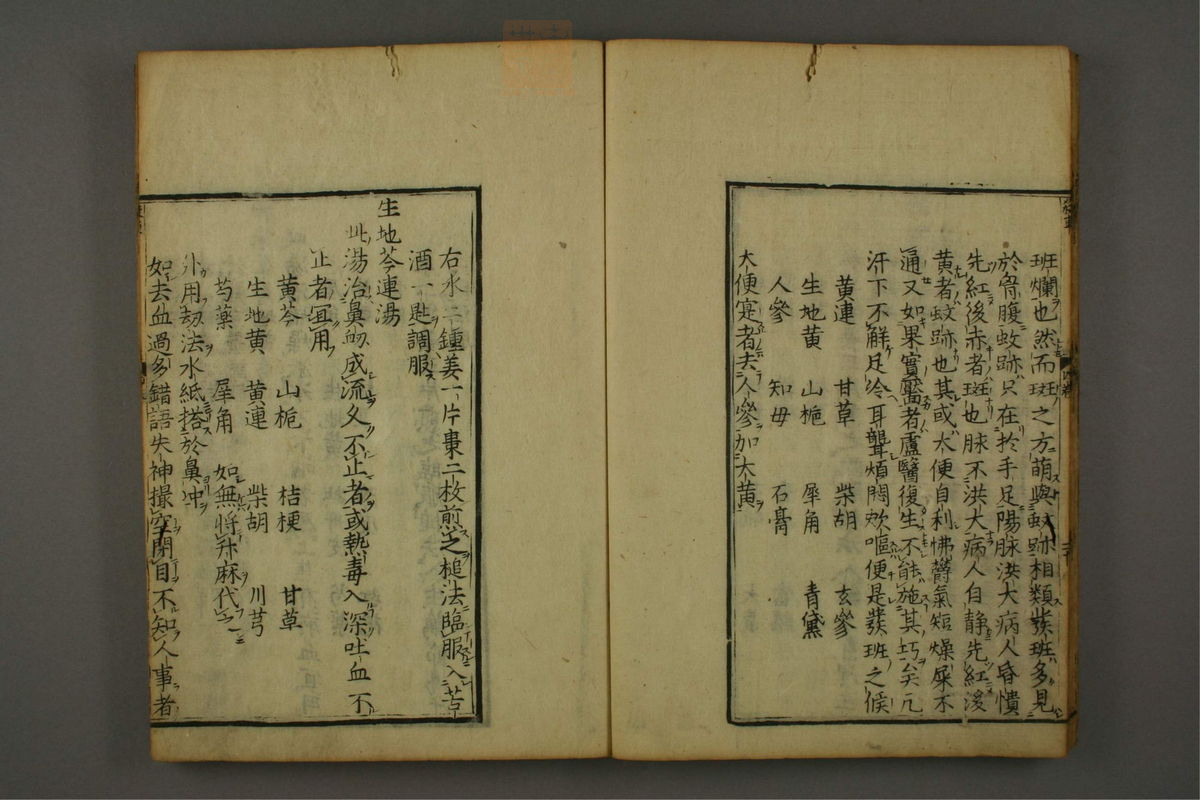 班爛也然而斑之方萌與蚊跡相類發班多見
於胷腹蚊跡只在於手足陽脉洪大病人昏憒
先紅後赤者斑也脉不洪大病人自静先紅後
黄者蚊跡也其或大便自利怫欝氣短燥屎不
通又如果實黶者盧醫復生不能施其巧矣凡
汗下不解足冷耳聾煩悶欬嘔便是發班之候
黄連 甘草 柴胡 玄參
生地黄 山梔 犀角 青黛
人參 知母 石膏
大便寔者去人參加大黄
右水二鍾姜一片棗二枚煎之槌法臨服入苦
酒一匙調服
生地芩連湯
此湯治鼻衂成流久不止者或熱毒入深吐血不
止者宜用
黄芩 山梔 桔梗 甘草
生地黄 黄連 柴胡 川芎
芍藥 犀角 如無將升麻代之
外用劫法水紙搭於鼻冲
如去血過多錯語失神撮空閉目不知人事者